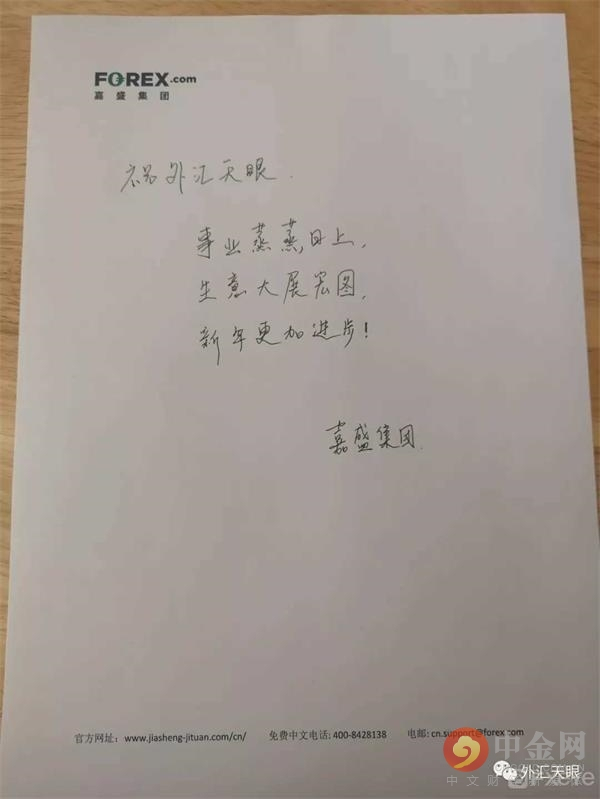 FOREX.com
嘉盛集团
祝外汇天眼.
事业蒸蒸日上,
生意大展宏图,
新年更加进步!
嘉盛集团.
官方网址: www.jiasheng-jituan.com/cn/ 免费中文电话: 400-8428138 电邮: cn.support@forex.com
中金网
中文财
外汇天眼